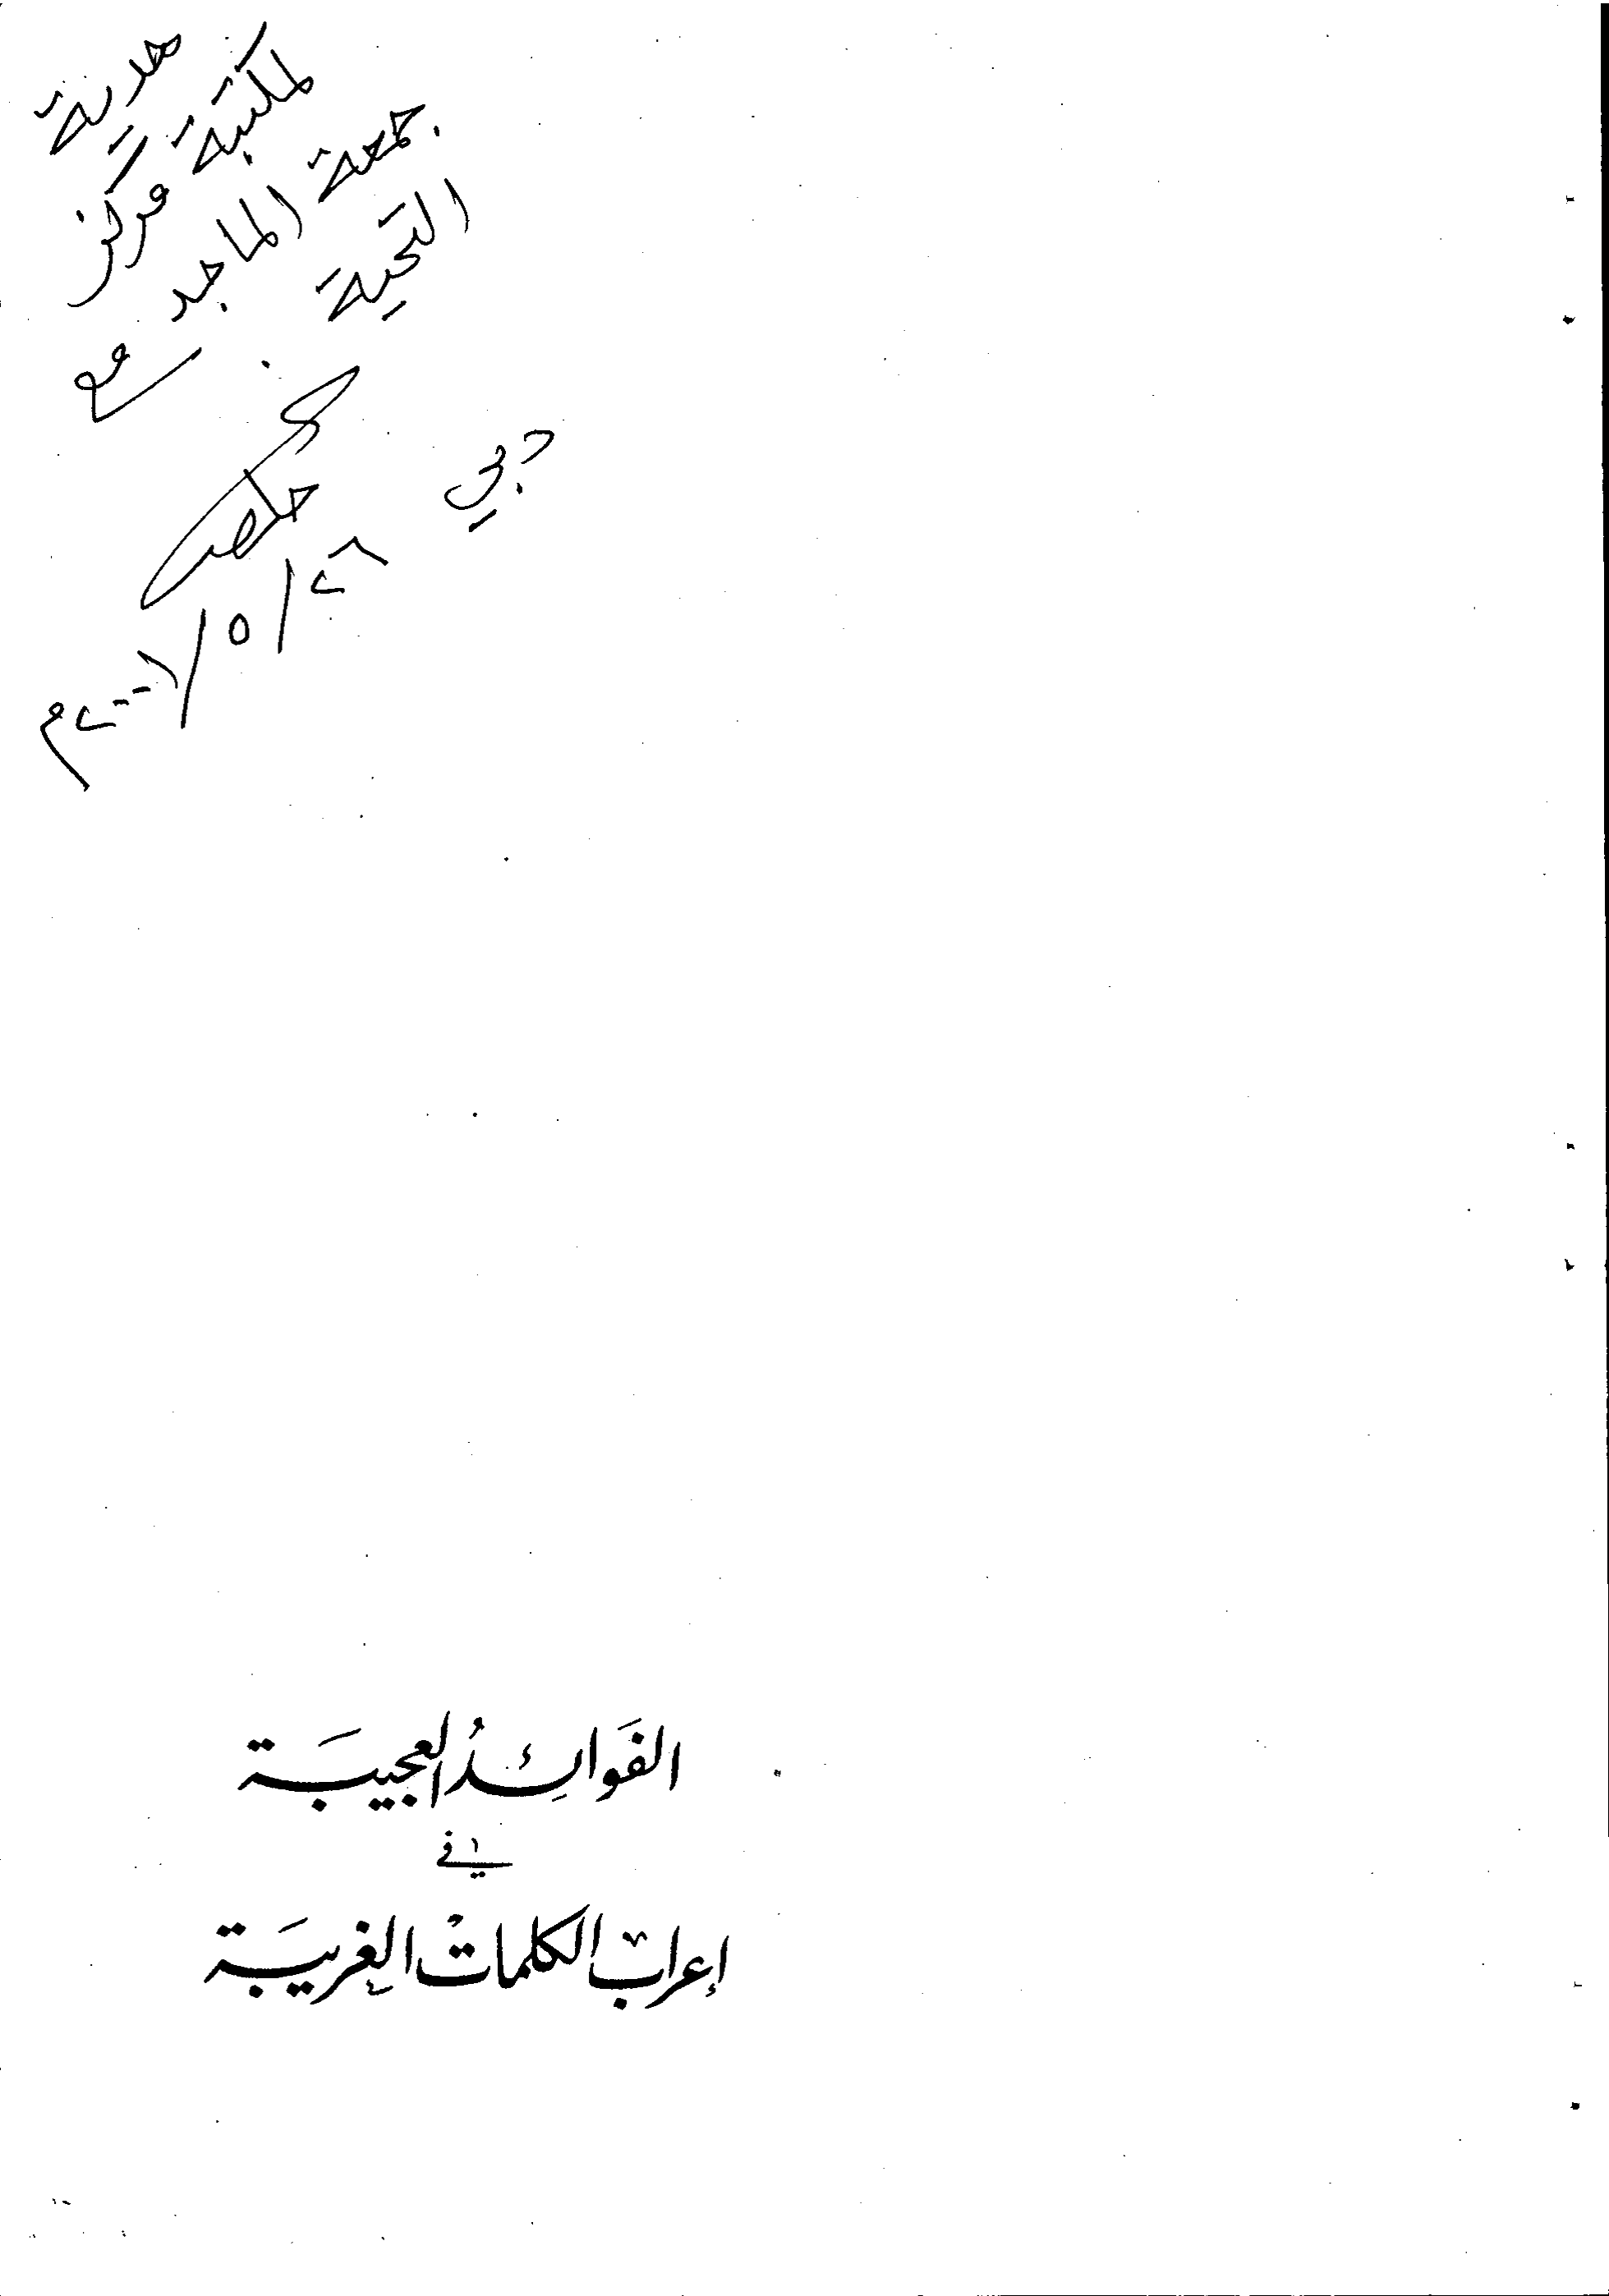 هدية
لمكتبة مركز
جمعة الماجد مع
التحية
دبي
٢٦/٥/٢٠٠١م
الفَوائِدُ العجيبَة
في
إعراب الكلمات الغريبَة